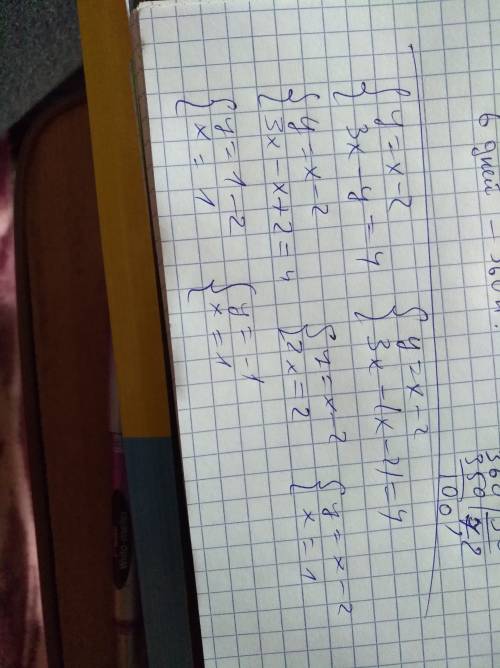 6 дней – 360 м.
360
350
100
{ y = x - 2
{ 3x - y = 4
{ y = x - 2
{ 3x - (x - 2) = 4
{ y = x - 2
{ 3x - x + 2 = 4
{ y = x - 2
{ 2x = 2
{ y = x - 2
{ x = 1
{ y = 1 - 2
{ x = 1
{ y = -1
{ x = 1